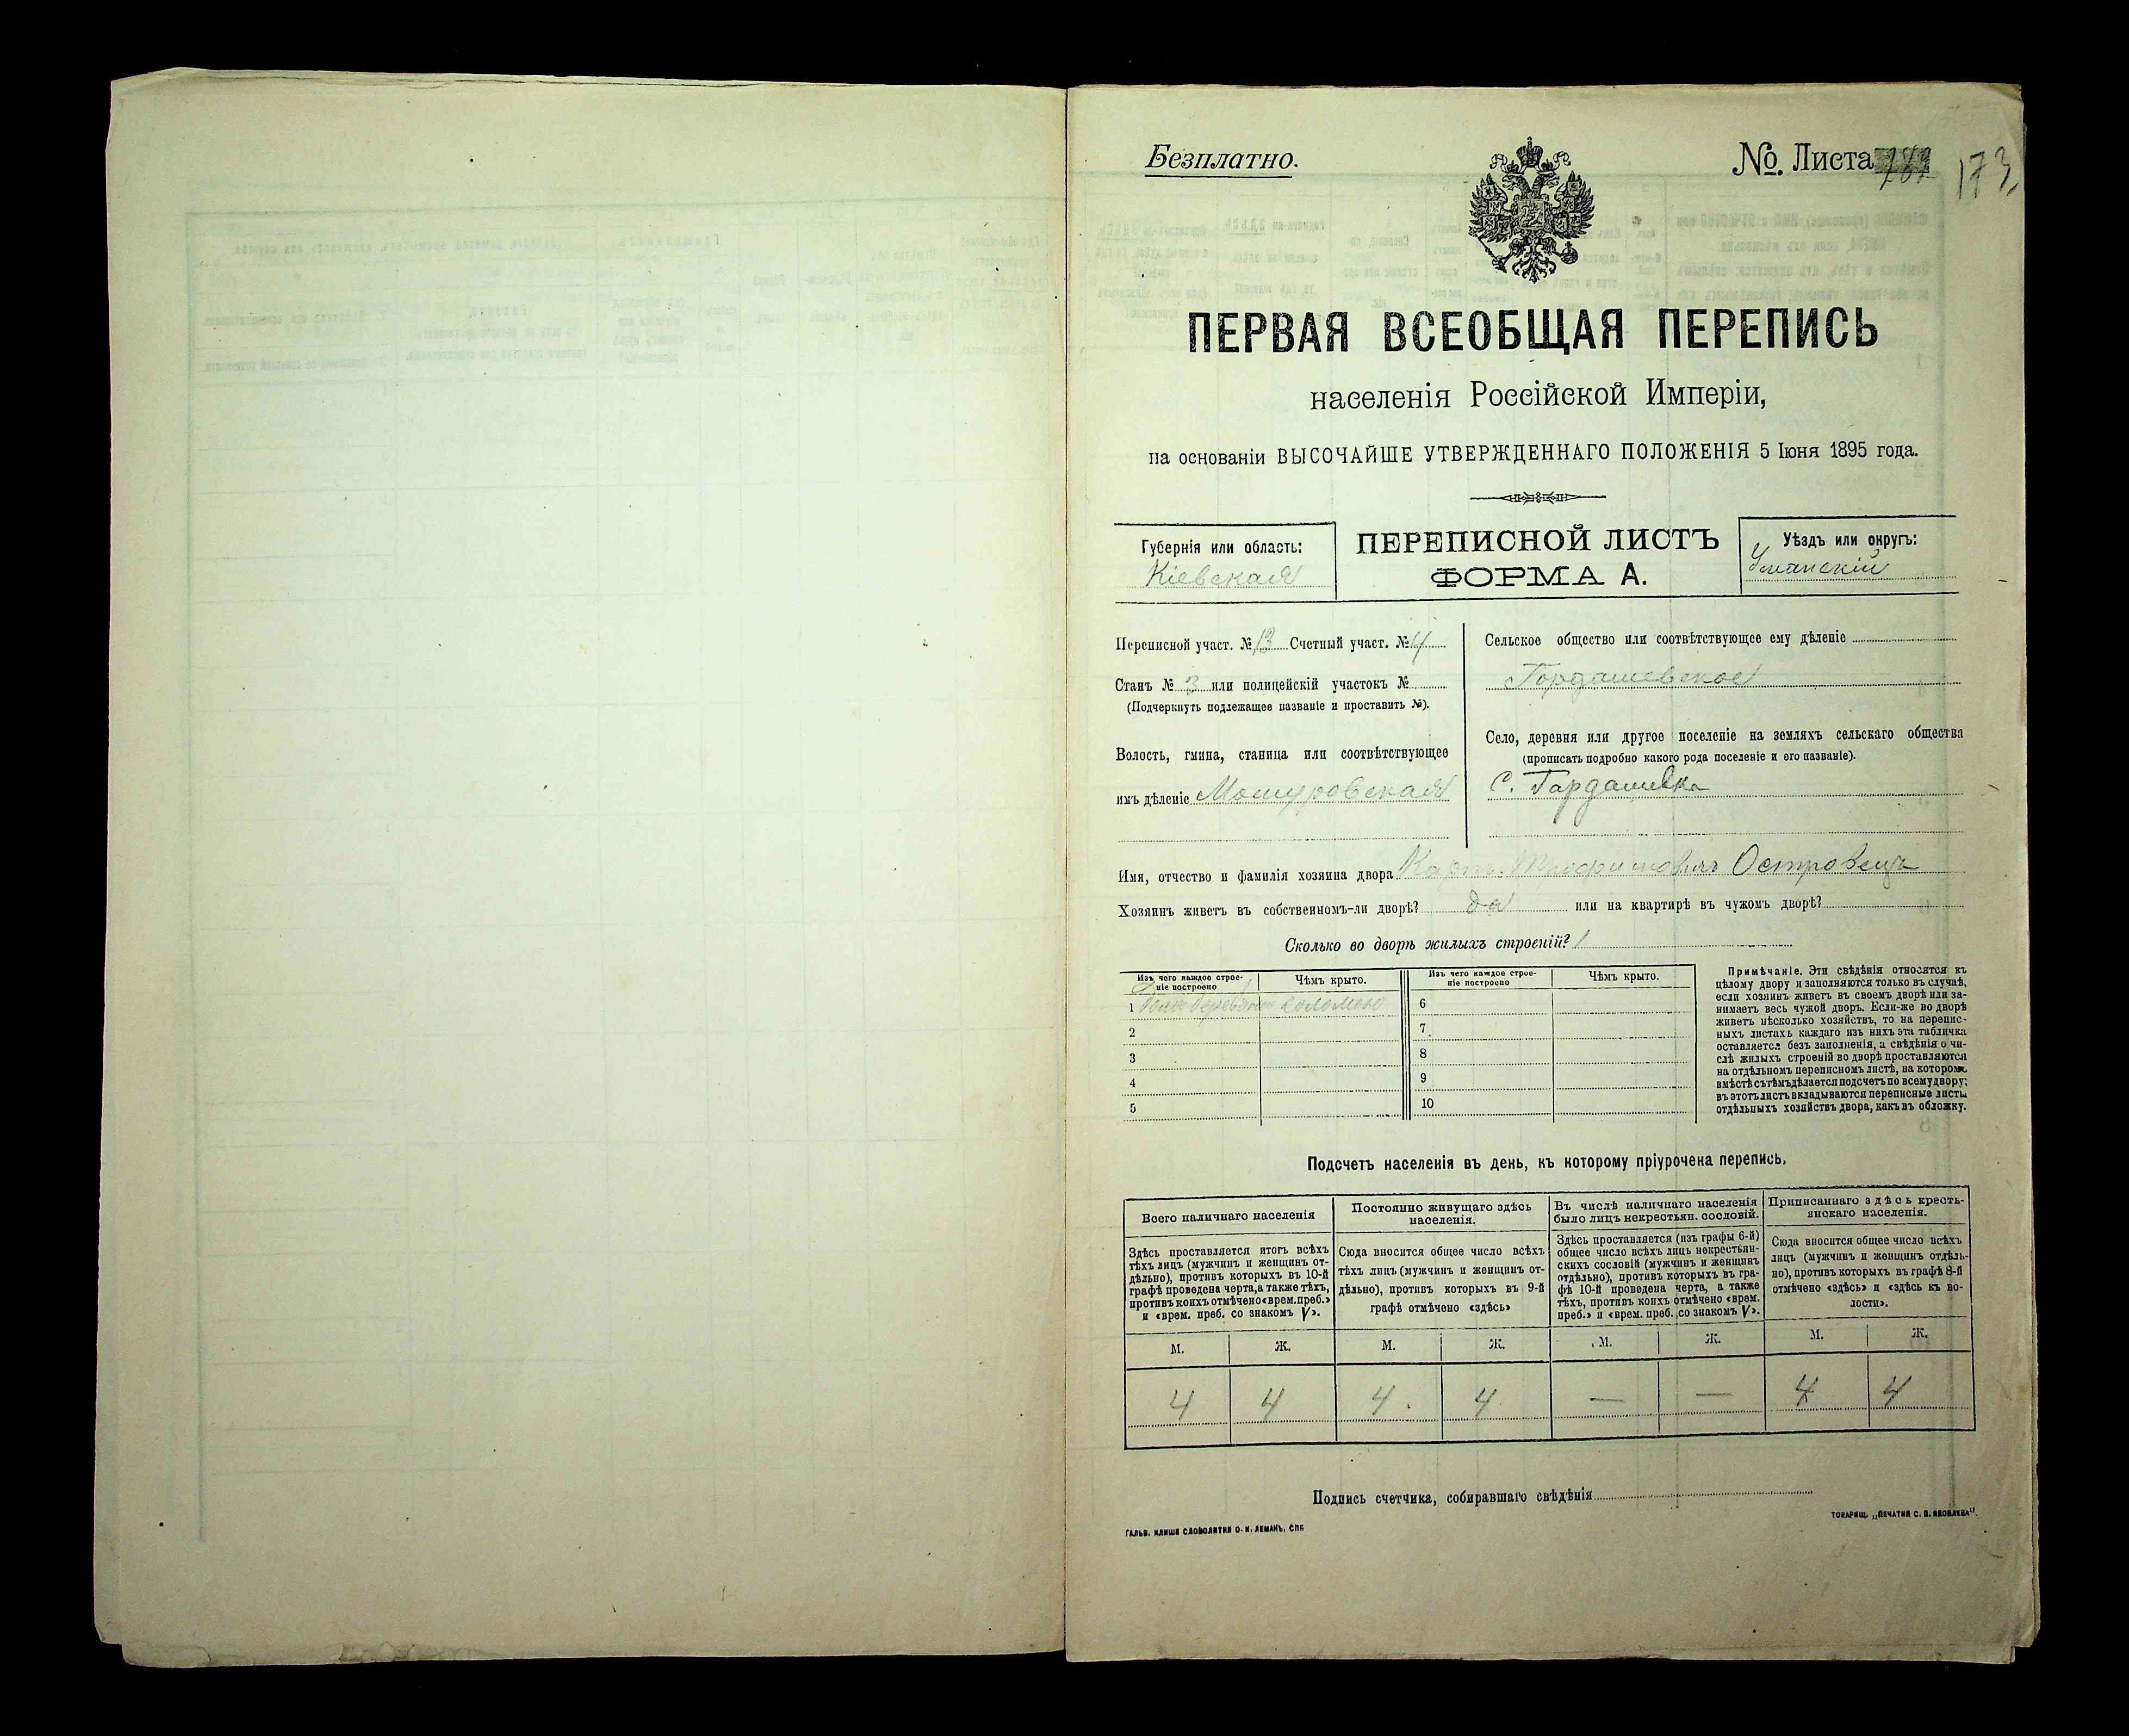 Безплатно.
№. Листа 173
ПЕРВАЯ ВСЕОБЩАЯ ПЕРЕПИСЬ
населенія Россійской Имперіи,
на основаніи ВЫСОЧАЙШЕ УТВЕРЖДЕННАГО ПОЛОЖЕНІЯ 5 Іюня 1895 года.
Губернія или область:
Кіевская
ПЕРЕПИСНОЙ ЛИСТЪ
ФОРМА А.
Уѣздъ или округъ:
Уманскій
Переписной участ. № 13 Счетный участ. № 4
Станъ № 3 или полицейскій участокъ №
(Подчеркнуть подлежащее названіе и проставить №).
Волость, гмина, станица или соотвѣтствующее
имъ дѣленіе Мошуровская
Сельское общество или соотвѣтствующее ему дѣленіе
Гордашевское
Село, деревня или другое поселеніе на земляхъ сельскаго общества
(прописать подробно какого рода поселеніе и его названіе).
С. Гардашевка
Имя, отчество и фамилія хозяина двора Карпъ Островецъ
Хозяинъ живетъ въ собственномъ-ли дворѣ? да или на квартирѣ въ чужомъ дворѣ?
Сколько во дворѣ жилыхъ строеній? 1
Изъ чего каждое строе-
ніе построено
Чѣмъ крыто.
Изъ чего каждое строе-
ніе построено
Чѣмъ крыто.
1 соломою
2
3
4
5
6
7
8
9
10
Примѣчаніе. Эти свѣдѣнія относятся къ
цѣлому двору и заполняются только въ случаѣ,
если хозяинъ живетъ въ своемъ дворѣ или за-
нимаетъ весь чужой дворъ. Если-же во дворѣ
живетъ нѣсколько хозяйствъ, то на перепис-
ныхъ листахъ каждаго изъ нихъ эта табличка
оставляется безъ заполненія, а свѣдѣнія о чи-
слѣ жилыхъ строеній во дворѣ проставляются
на отдѣльномъ переписномъ листѣ, на которомъ
вмѣстѣ съ тѣмъ дѣлается подсчетъ по всему двору;
въ этотъ листъ вкладываются переписные листы
отдѣльныхъ хозяйствъ двора, какъ въ обложку.
Подсчетъ населенія въ день, къ которому пріурочена перепись.
Всего наличнаго населенія
Здѣсь проставляется итогъ всѣхъ
тѣхъ лицъ (мужчинъ и женщинъ от-
дѣльно), противъ которыхъ въ 10-й
графѣ проведена черта, а также тѣхъ,
противъ коихъ отмѣчено «врем. преб.»
и «врем. преб. со знакомъ V».
Постоянно живущаго здѣсь
населенія.
Сюда вносится общее число всѣхъ
тѣхъ лицъ (мужчинъ и женщинъ от-
дѣльно), противъ которыхъ въ 9-й
графѣ отмѣчено «здѣсь»
Въ числѣ наличнаго населенія
было лицъ некрестьян. сословій.
Здѣсь проставляется (изъ графы 6-й)
общее число всѣхъ лицъ некрестьян-
скихъ сословій (мужчинъ и женщинъ
отдѣльно), противъ которыхъ въ гра-
фѣ 10-й проведена черта, а также
тѣхъ, противъ коихъ отмѣчено «врем.
преб.» и «врем. преб. со знакомъ V».
Приписаннаго здѣсь кресть-
янскаго населенія.
Сюда вносится общее число всѣхъ
лицъ (мужчинъ и женщинъ отдѣль-
но), противъ которыхъ въ графѣ 8-й
отмѣчено «здѣсь» и «здѣсь къ во-
лости».
М. Ж. М. Ж. М. Ж. М. Ж.
4 4 4 4 — — 4 4
Подпись счетчика, собиравшаго свѣдѣнія
ГАЛЬВ. КЛИШЕ СЛОВОЛИТНИ О. И. ЛЕМАНЪ, СПБ
ТОВАРИЩ. „ПЕЧАТНЯ С. П. ЯКОВЛЕВА".